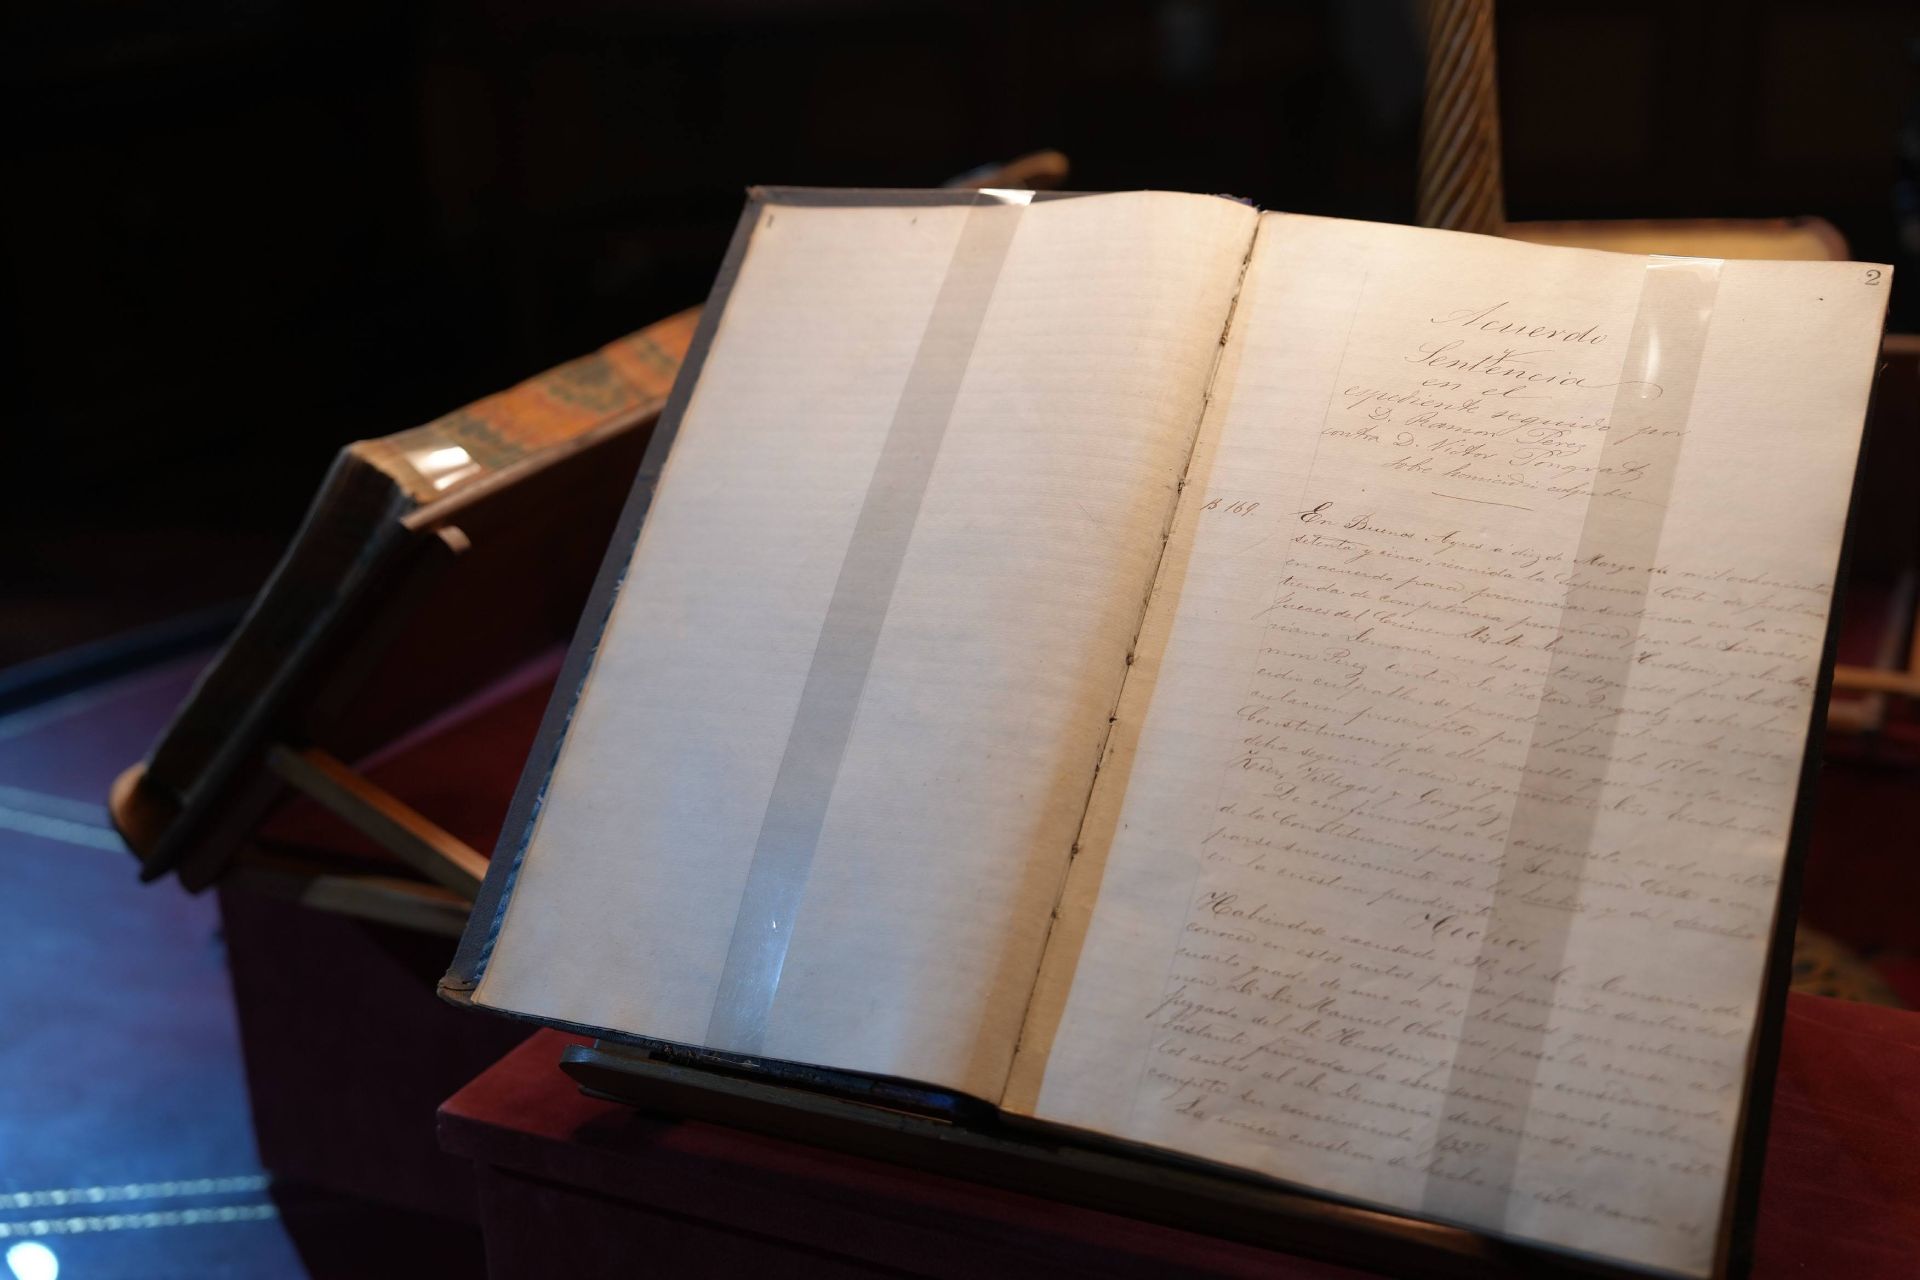 2
Acuerdo
y
Sentencia
en el
expediente seguido por
D. Ramon Perez
contra D. Victor Pongratz
sobre homicidio culpable
B 169.
En Buenos Ayres a diez de Marzo de mil ochocientos
setenta y cinco, reunida la Suprema Corte de Justicia
en acuerdo para pronunciar sentencia en la con-
tienda de competencia promovida por los Señores
Jueces del Crimen Hudson, y
Demaria, en los autos seguidos por
mon Perez contra D. Victor Pongratz, sobre homi-
cidio culpable, se procedió a practicar la insa-
culacion prescripta por el articulo de la
Constitucion, y de ella resultó que la votacion
debia seguir el orden siguiente: Escalada
Kier, Villegas y Gonzalez
De conformidad a lo dispuesto en el articulo
de la Constitucion, pasó la Suprema Corte a ocu-
parse sucesivamente de los hechos y del derecho
en la cuestion pendiente.
Hechos
Habiendose excusado el Demaria, de
conocer en estos autos por su pariente dentro del
cuarto grado de uno de los letrados que intervie-
nen, Manuel Obarrio, pasó la causa al
juzgado del Dr. Hudson, quien no considerando
bastante fundada la escusacion mandó
los autos al Demaria declarando que a este
compete su conocimiento
La unica cuestion de hecho en esta causa es